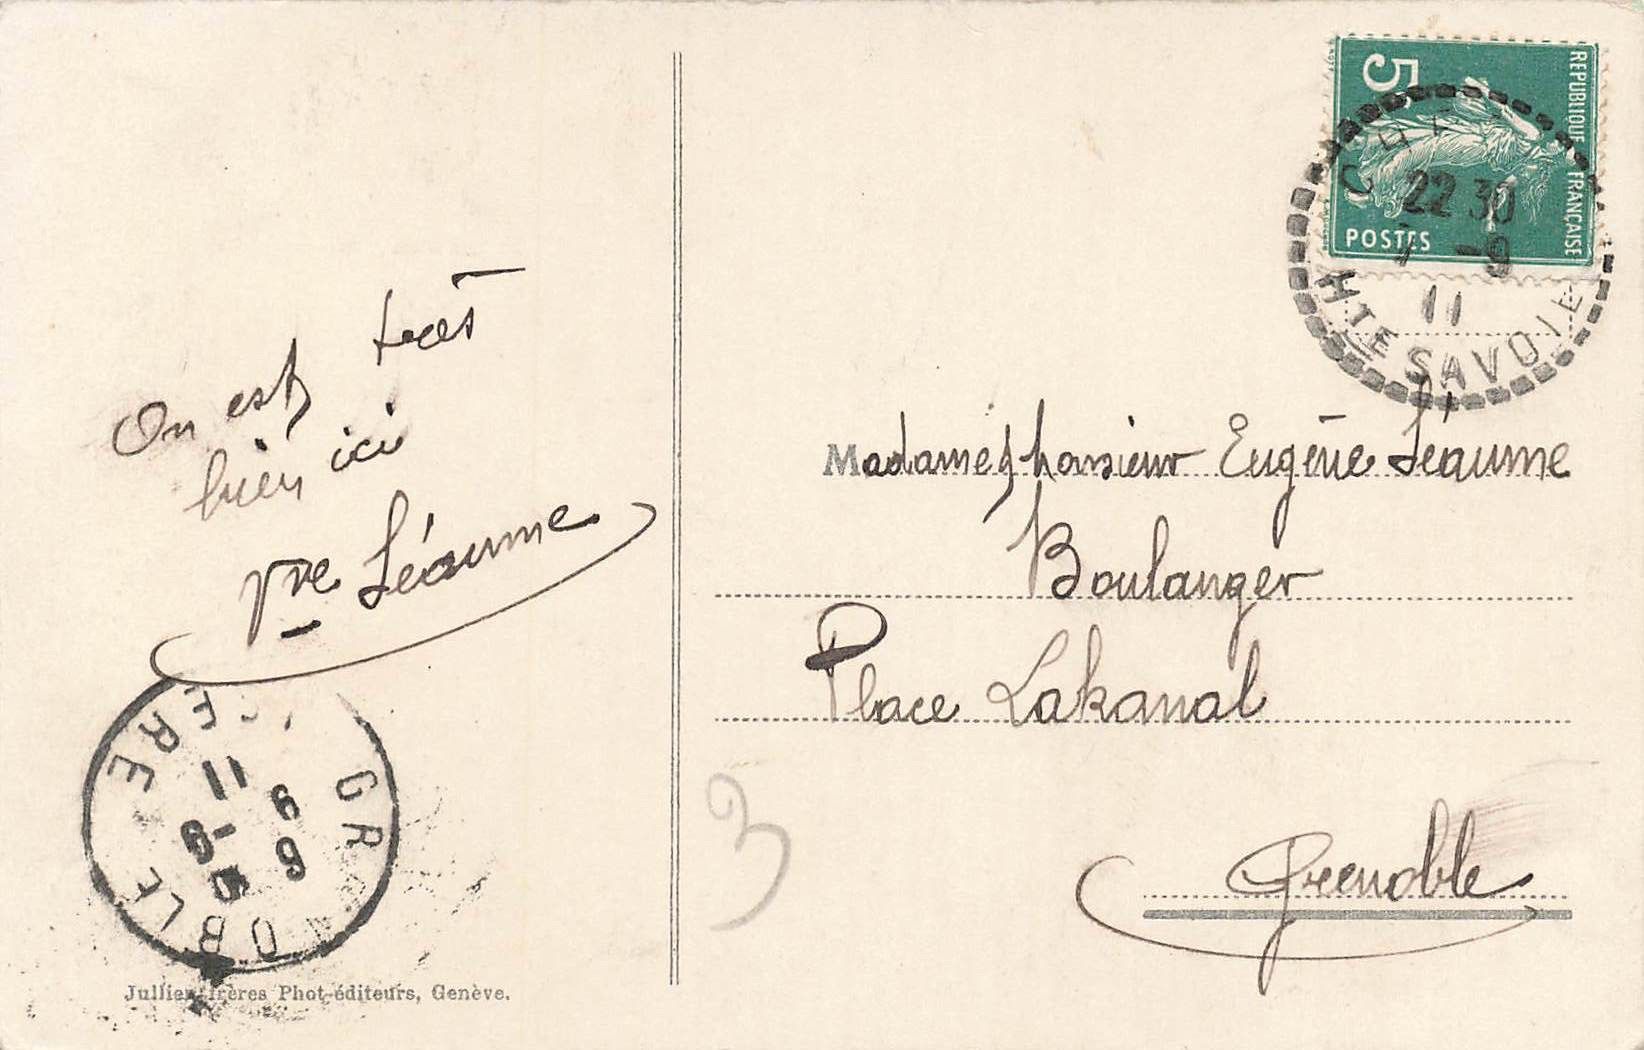 On est très
bien ici
Vve Séaume
GRENOBLE ISERE
9 6
-9
11
Jullien frères Phot-éditeurs, Genève.
5c
REPUBLIQUE FRANÇAISE
POSTES
22 30
7 -9
11
HTE SAVOIE
Madame & Monsieur Eugène Séaume
Boulanger
Place Lakanal
Grenoble
3